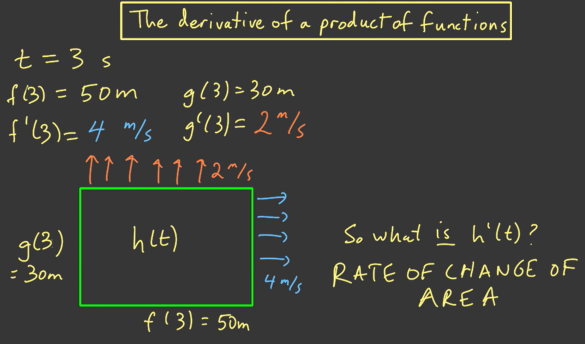 The derivative of a product of functions
t = 3 s
f(3) = 50m
g(3)=30m
f'(3)= 4 m/s
g'(3)= 2 m/s
2 m/s
g(3)
= 30m
h(t)
4 m/s
f(3) = 50m
So what is h'(t)?
RATE OF CHANGE OF
AREA